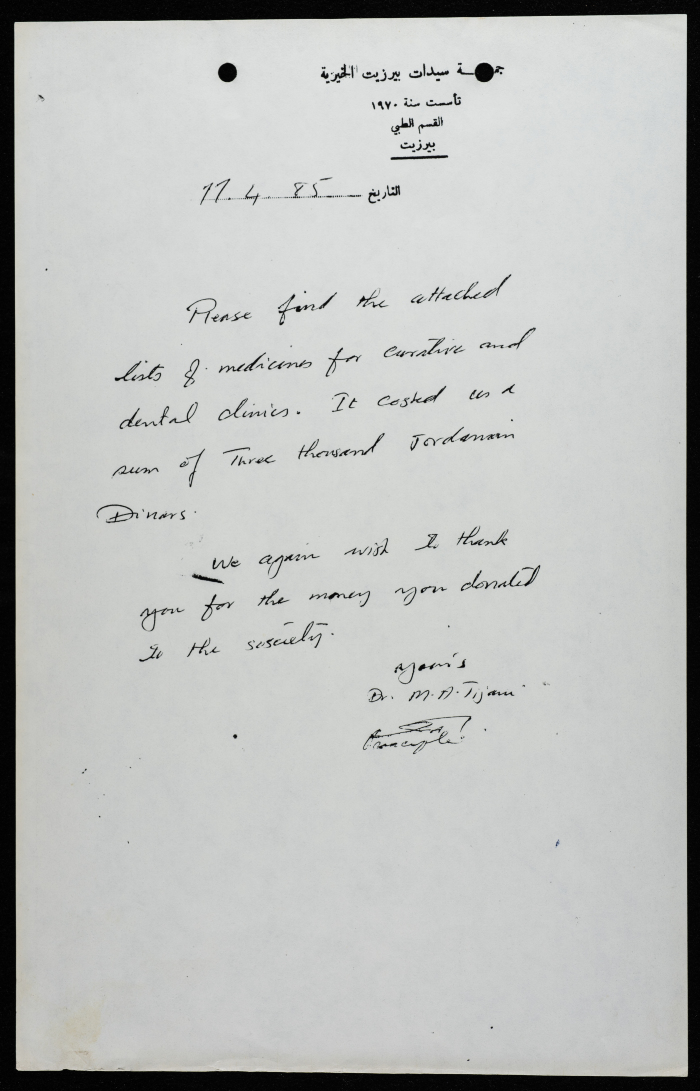 جمعية سيدات بيرزيت الخيرية
تأسست سنة ١٩٧٠
القسم الطبي
بيرزيت
التاريخ 11.4.85
Please find the attached
lists of medicines for curative and
dental clinics. It costed us a
sum of Three thousand Jordanain
Dinars.
We again wish to thank
you for the money you donated
to the sosciety.
yours
Dr. M.A. Tijani